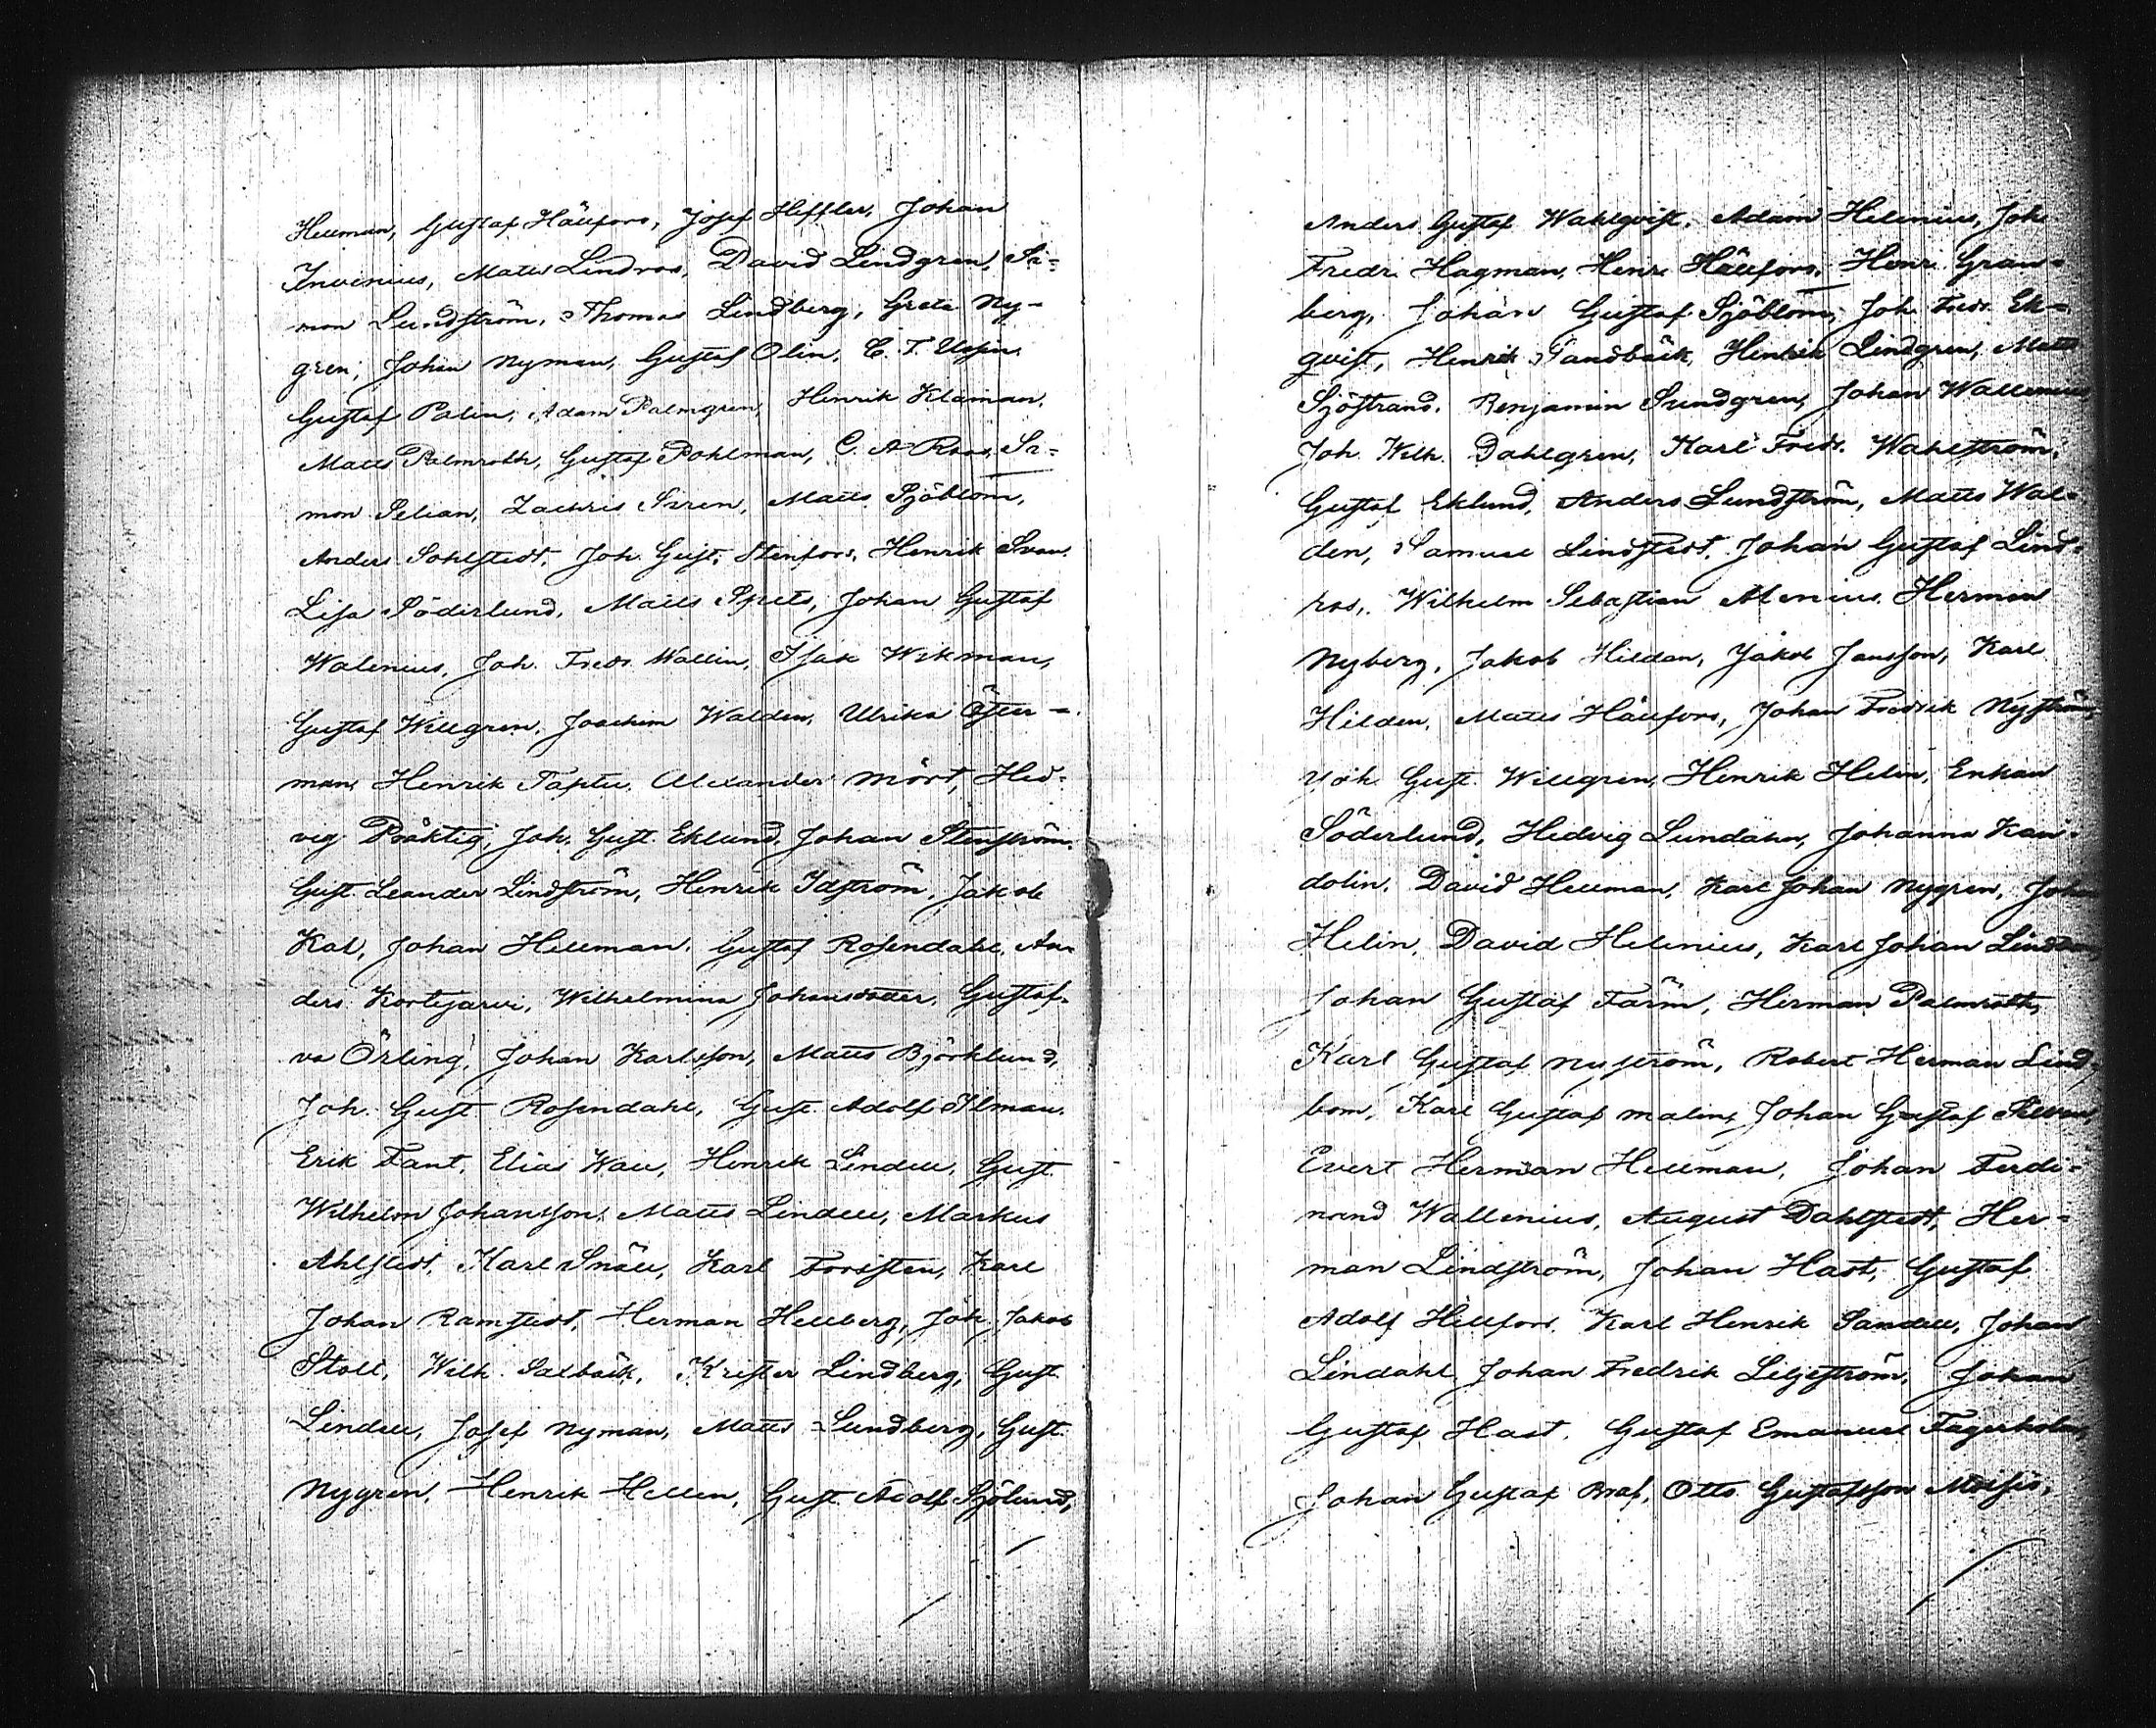 Hellman, Gustaf Hällfors, Josef Heffler, Johan
Invenius, Matts Lindros, David Lindgren, Si-
mon Lundström, Thomas Lindberg, Greta Ny-
gren, Johan Nyman, Gustaf Olin, C. F.
Gustaf Palin, Adam Palmgren, Henrik
Matts Palmroth, Gustaf Pohlman, C. A Roos, Si-
mon Selian, Zachris Siren, Matts Sjöblom,
Anders Sohlstedt, Joh. Gust. Stenfors, Henrik Svan.
Lisa Söderlund, Matts Spets, Johan Gustaf
Walenius, Joh. Fredr. Wallin, Isak Wikman,
Gustaf Willgren, Joachim Walden, Ulrika Öster-
man, Henrik Tapter, Alexander Mört, Hed-
vig Präktig, Joh. Gust. Eklund, Johan Stenström.
Gust. Leander Lindström, Henrik Idström, Jakob
Kal, Johan Hellman, Gustaf Rosendahl, An-
ders Kortejarvi, Wilhelmina Johansdotter, Gustaf-
va Örling, Johan Karlsson, Matts Björklund,
Joh. Gust Rosendahl, Gust. Adolf Ilman.
Erik Fant, Elias Wall, Henrik Lindell, Gust.
Wilhelm Johansson, Matts Lindell, Markus
Ahlstedt, Karl Snäll, Karl Forssten, Karl
Johan Ramstedt, Herman Hellberg, Joh. Jakob
Stoll, Wilh. Salbäck, Krister Lindberg, Gust.
Lindell, Josef Nyman, Matts Sundberg, Gust.
Nygren, Henrik Hellen, Gust. Adolf Sjölund,
Anders Gustaf Wahlqvist, Adam Helenius, Joh
Fredr. Hagman, Henr. Hällfors, Henr. Gran-
berg, Johan Gustaf Sjöblom, Joh. Fredr. Ek-
qvist, Henrik Sandbäck, Henrik Lindgren, Matts
Sjöstrand, Benjamin Sundgren, Johan Wallenius
Joh. Wilh. Dahlgren, Karl Fredr. Wahlström,
Gustaf Eklund, Anders Lundström, Matts Wal-
den, Samuel Lindstedt, Johan Gustaf Lind-
ros, Wilhelm Sebastian Alenius, Herman
Nyberg, Jakob Hilden, Jakob Jansson, Karl
Hilden, Matts Hällfors, Johan Fredrik Nyström,
Joh. Gust. Willgren, Henrik Helin, Enkan
Söderlund, Hedvig Lundahn, Johanna Kan-
dolin, David Hellman, Karl Johan Nygren, Joh
Helin, David Helenius, Karl Johan
Johan Gustaf Färm, Herman Palmroth,
Karl Gustaf Nyström, Robert Herman Lind-
bom, Karl Gustaf Malin, Johan Gustaf
Evert Herman Hellman, Johan Ferdi-
nand Wallenius, August Dahlstedt, Her-
man Lindström, Johan Hast, Gustaf
Adolf Hellfors, Karl Henrik Sandell, Johan
Lindahl, Johan Fredrik Liljeström, Johan
Gustaf Hast, Gustaf Emanuel Fagerholm,
Johan Gustaf Braf, Otto Gustafsson Moisio,